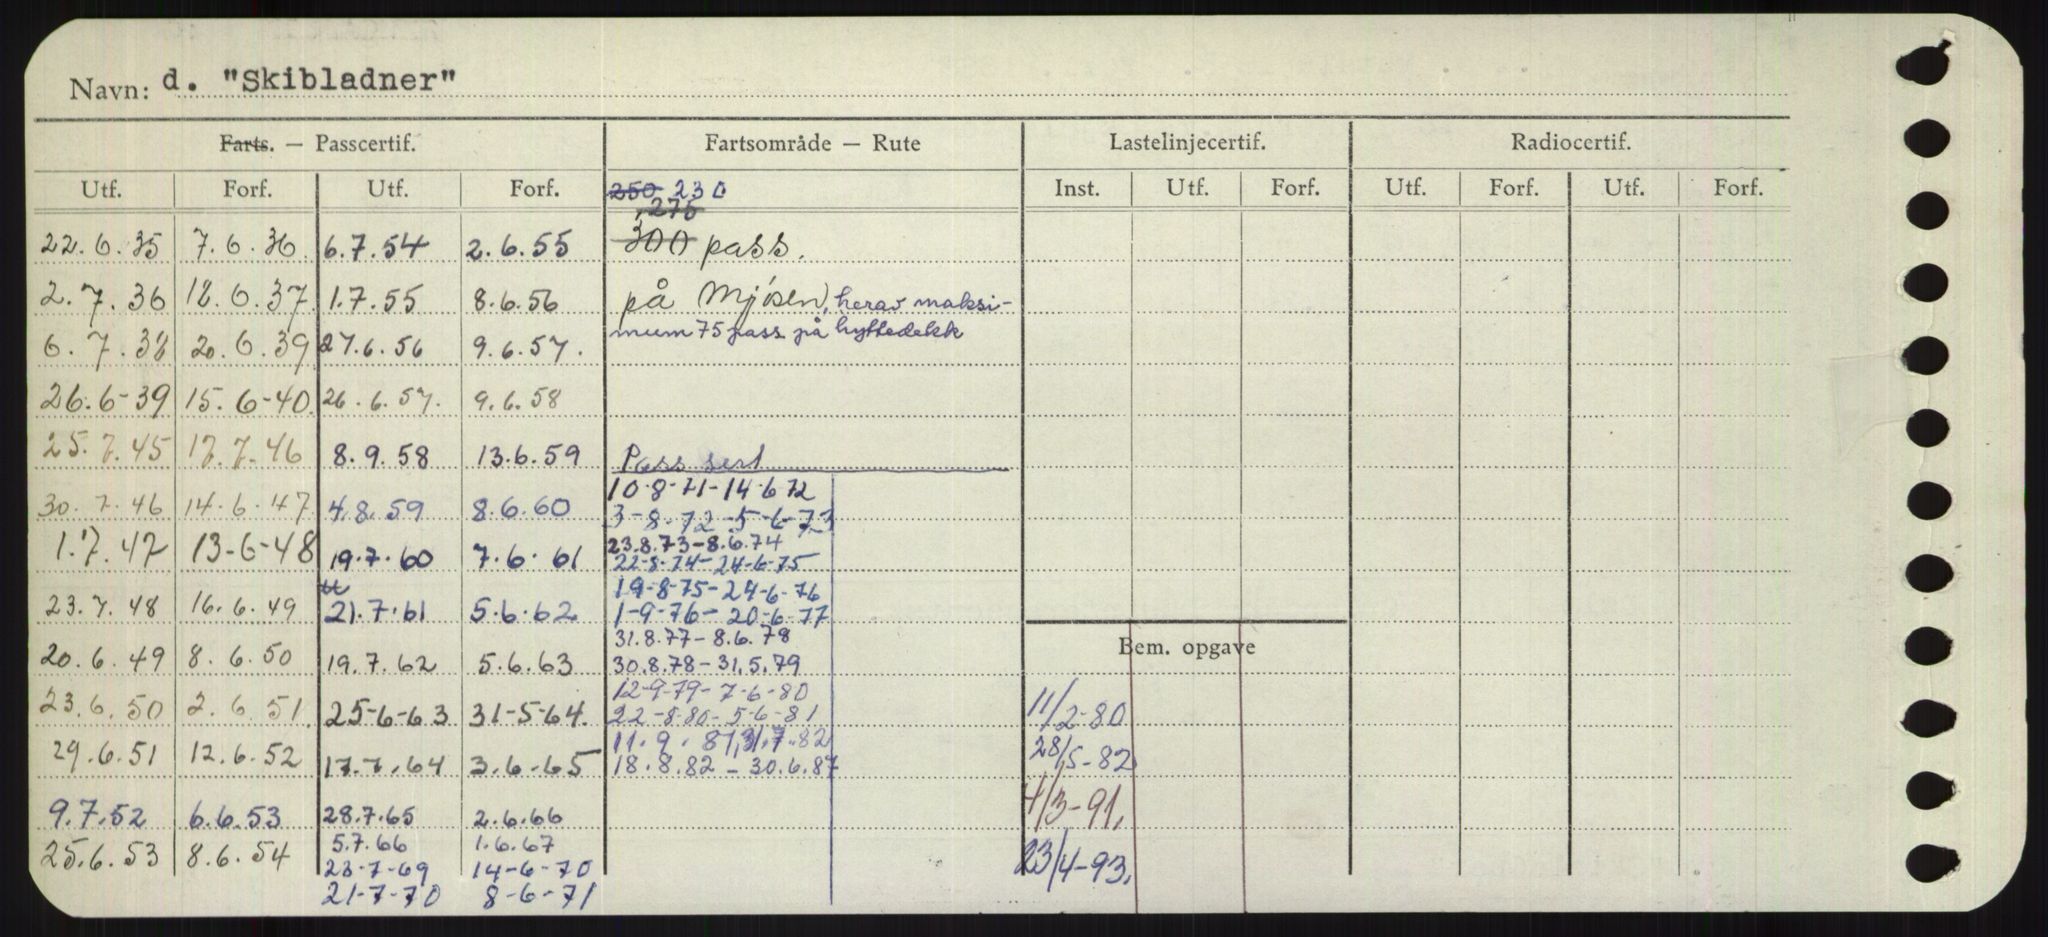 Navn: d. "Skibladner"
Farts. — Passcertif. Fartsområde — Rute Lastelinjecertif. Radiocertif.
Utf. Forf. Utf. Forf. 250 230 Inst. Utf. Forf. Utf. Forf. Utf. Forf.
275
22.6.35 7.6.36 6.7.54 2.6.55 300 pass.
2.7.36 12.6.37 1.7.55 8.6.56 på Mjösen, herav maksi-
mum 75 pass på hyttedekk
6.7.38 20.6.39 27.6.56 9.6.57.
26.6-39 15.6-40 26.6.57. 9.6.58
25.7.45 17.7.46 8.9.58 13.6.59 Pass sert
30.7.46 14.6.47 4.8.59 8.6.60 10-8-71-14-6-72
3-8-72-5-6-73
1.7.47 13-6-48 19.7.60 7.6.61 23.8.73-8.6.74
22-8-74-24-6-75
23.7.48 16.6.49 21.7.61 5.6.62 19-8-75-24-6-76
1-9-76-20-6-77
31.8.77-8.6.78
Bem. opgave
20.6.49 8.6.50 19.7.62 5.6.63 30.8.78-31.5.79
12-9-79-7-6-80
23.6.50 2.6.51. 25-6-63 31-5-64. 22-8-80-5-6-81 11/2-80
11.9.81, 31.7.82
29.6.51 12.6.52 17.7.64 3.6-65 18.8.82-30.6.87 28/5-82
9.7.52 6.6.53 28.7.65 2.6.66 4/3-91.
5.7.66 1.6.67
25.6.53 8.6.54 23-7-69 14-6-70 23/4-93.
21-7-70 8-6-71